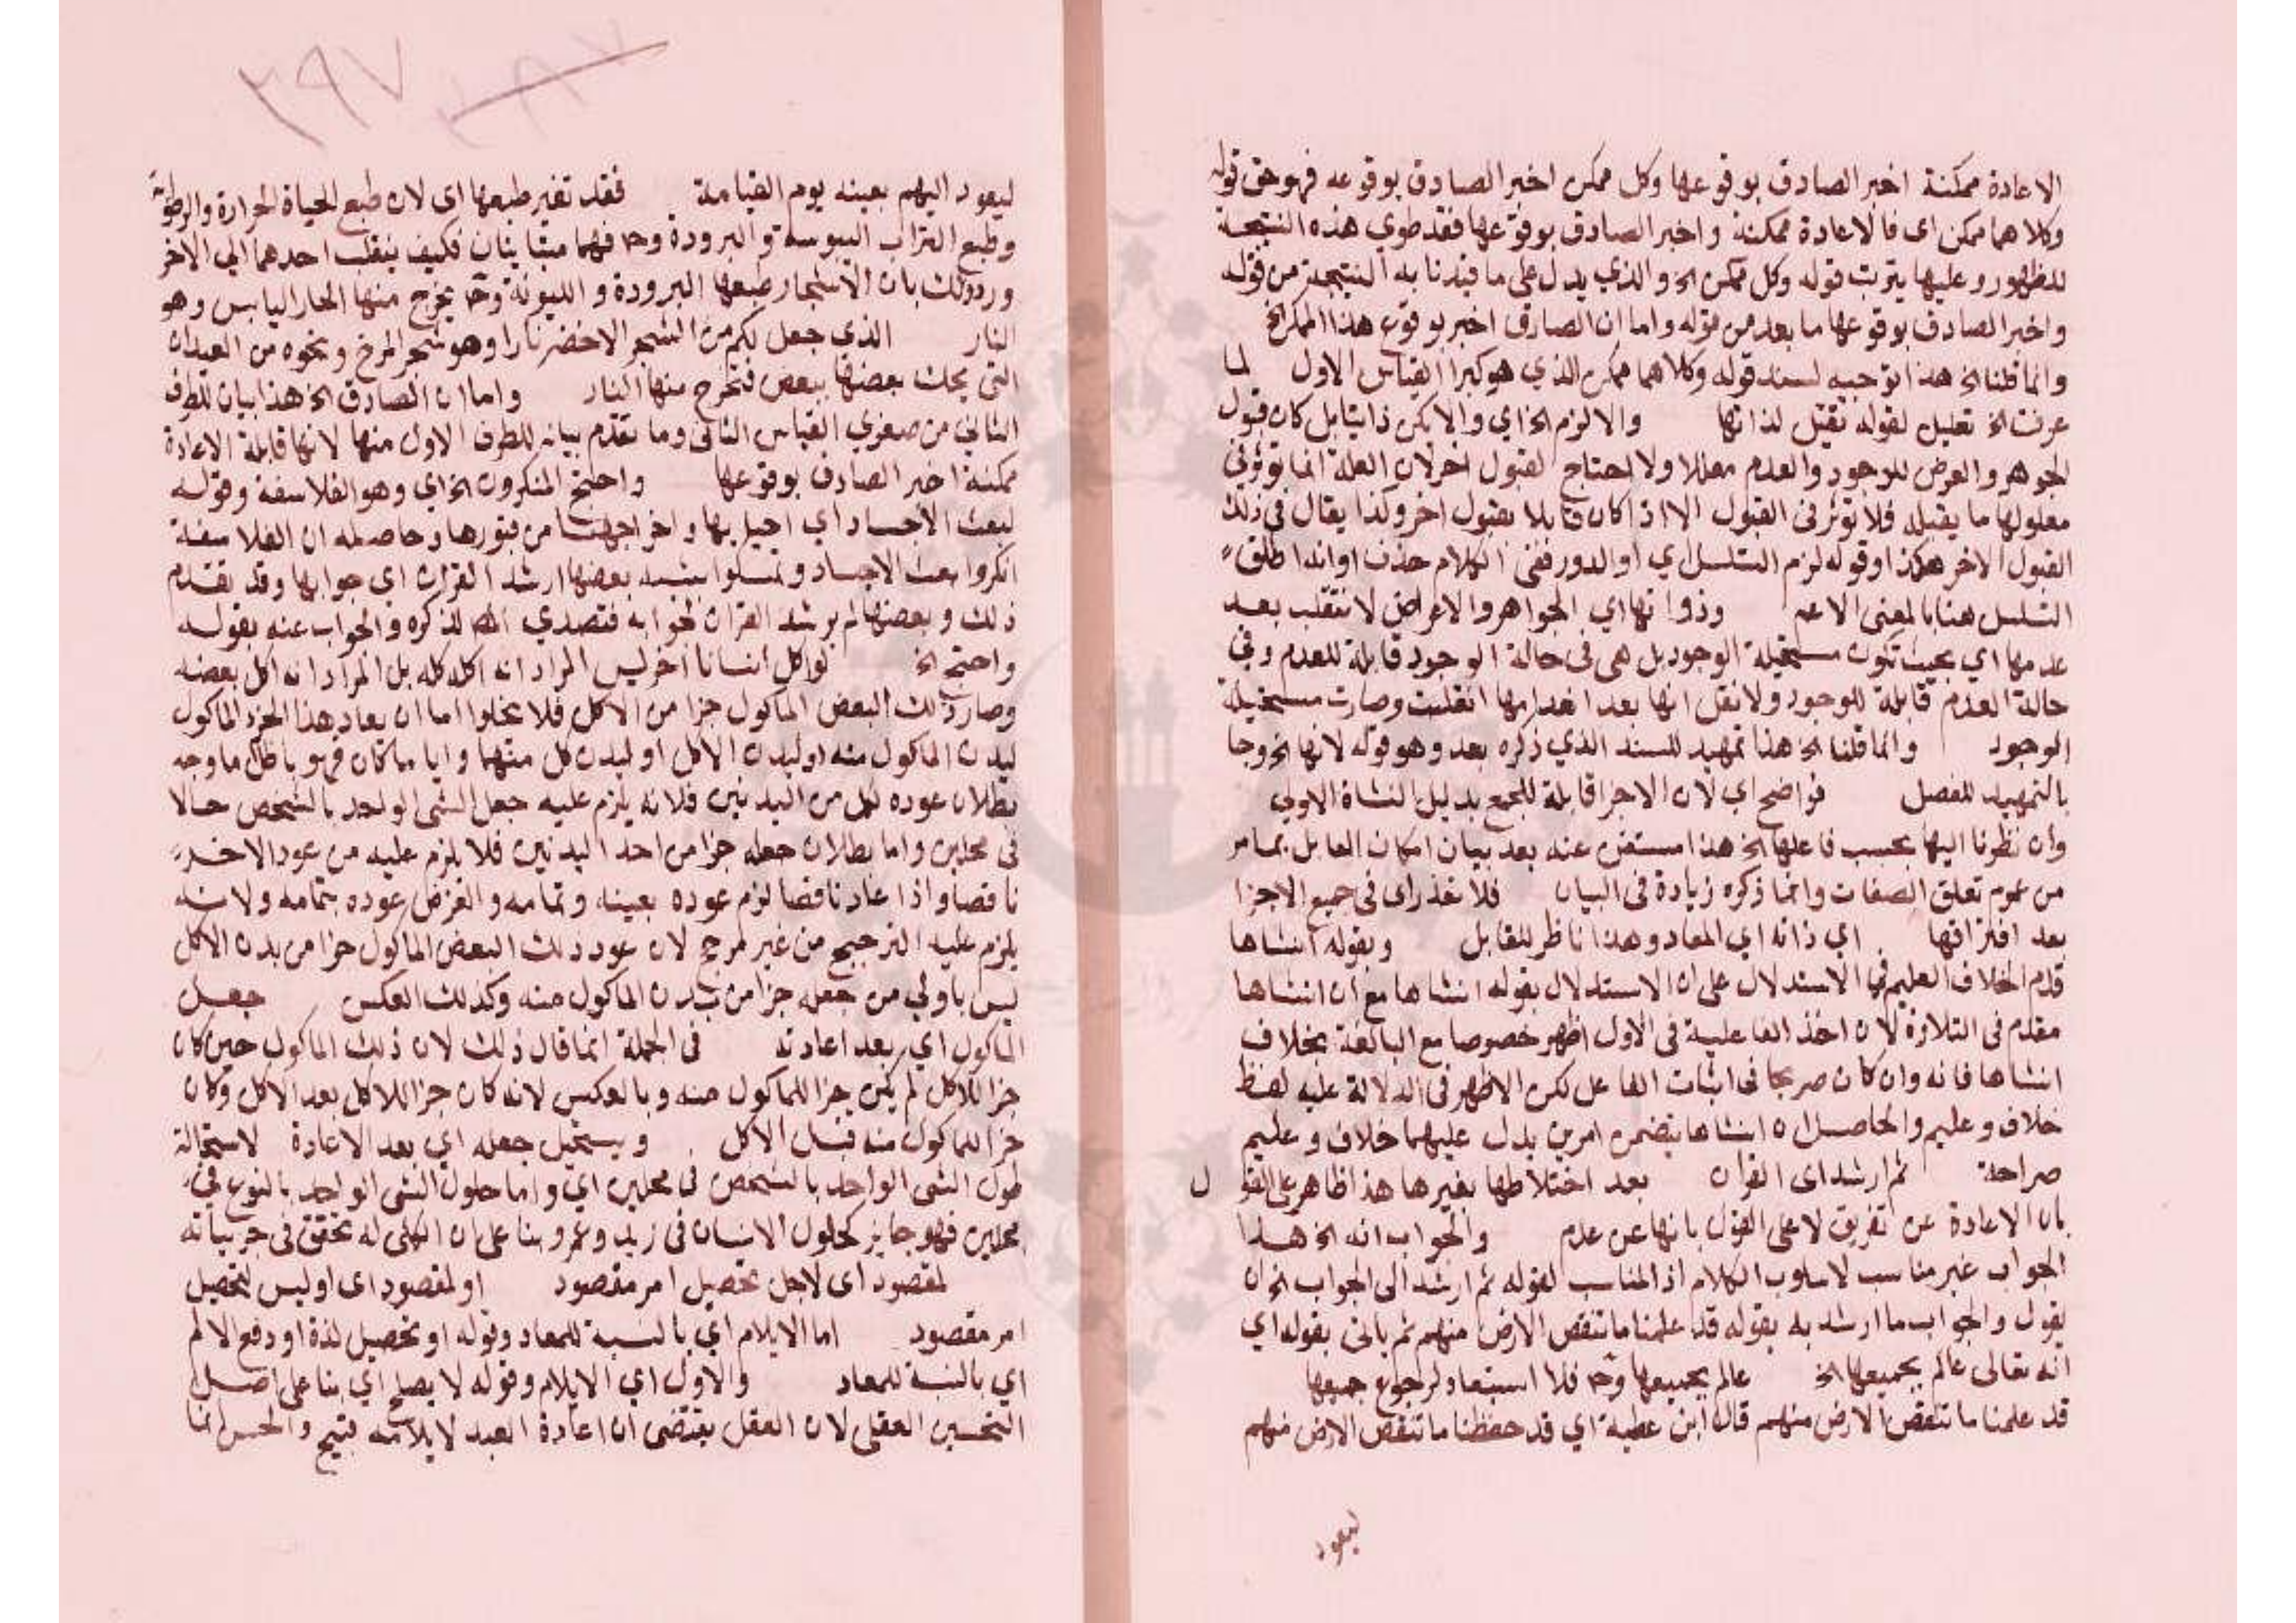 الاعادة ممكنة اخبر الصادق بوقوعها وكل ممكن اخبر الصادق بوقوعه فهو حق قوله
وكلاهما ممكن اى فالاعادة ممكنة واخبر الصادق بوقوعها فقد طوي هذه النتيجة
للظهور وعليها يترتب قوله وكل ممكن الخ والذي يدل على ما قيدنا به النتيجة من قوله
واخبر الصادق بوقوعها ما بعد من قوله واما ان الصادق اخبر بوقوع هذا الممكن الخ
وانما قلنا الخ هذا توجيه لسند قوله وكلاهما ممكن الذي هو كبرا القياس الاول لما
عرفت الخ تعليل لقوله تقبل لذاتها والا لزم الخ اي والا يكن ذاتيا بل كان قبول
الجوهر والعرض للوجود والعدم معللا ولاحتاج لقبول اخر لان العلة انما توثر في
معلولها ما يقبله فلا توثر فى القبول الا اذا كان قابلا بقبول اخر وكذا يقال فى ذلك
القبول الاخر هكذا وقوله لزم التسلسل اي او الدور ففي الكلام حذف او انه اطلق
التسلسل هنا بالمعنى الاعم وذواتها اي الجواهر والاعراض لا تنقلب بعد
عدمها اي بحيث تكون مستحيلة الوجود بل هى فى حالة الوجود قابلة للعدم وفي
حالة العدم قابلة للوجود ولا نقل انها بعد انعدامها انقلبت وصارت مستحيلة
الوجود وانما قلنا الخ هذا تمهيد للسند الذي ذكره بعد وهو قوله لانها الخ وجا
بالتمهيد للفصل فواضح اي لان الاجزا قابلة للجمع بدليل النشاة الاولي
وان نظرنا اليها بحسب فاعلها الخ هذا مستغن عنه بعد بيان امكان القابل بما مر
من عموم تعلق الصفات وانما ذكره زيادة فى البيان فلا تعذر اى فى جميع الاجزا
بعد افتراقها اي ذاته اي المعاد وهذا ناظر للقابل وبقوله انشاها
قدم الخلاف العليم في الاستدلال على ان الاستدلال بقوله انشاها مع ان انشاها
مقدم فى التلاوة لان اخذ الفاعلية فى الاول اظهر خصوصا مع البالغة بخلاف
انشاها فانه وان كان صريحا فى اثبات الفاعل لكن الاظهر فى الدلالة عليه لفظ
خلاف وعليم والحاصل ان انشاها يتضمن امرين يدل عليهما خلاف وعليم
صراحة ثم ارشد اى القران بعد اختلاطها بغيرها هذا ظاهر على القول
بان الاعادة عن تفريق لا على القول بانها عن عدم والجواب انه الخ هذا
الجواب غير مناسب لاسلوب الكلام اذ المناسب لقوله ثم ارشد الى الجواب الخ ان
يقول والجواب ما ارشد به بقوله قد علمنا ما تنقص الارض منهم ثم ياتى بقوله اي
انه تعالى عالم بجميعها الخ عالم بجميعها وح فلا استبعاد لرجوع جميعها
قد علمنا ما تنقص الارض منهم قال ابن عطية اي قد حفظنا ما تنقص الارض منهم
ليعود
٢٩٧
ليعود اليهم بعينه يوم القيامة فقد تغير طبعها اى لان طبع الحياة الحرارة والرطوبة
وطبع التراب اليبوسة والبرودة وح فهما متباينان فكيف ينقلب احدهما الي الاخر
ورد ذلك بان الاشجار طبعها البرودة والليونة وح يخرج منها الحار اليابس وهو
النار الذي جعل لكم من الشجر الاخضر نارا وهو شجر المرخ ونحوه من العيدان
التي يحك بعضها ببعض فتخرج منها النار واما ان الصادق الخ هذا بيان للطرف
الثاني من صغري القياس الثاني وما تقدم بيان للطرف الاول منها لانها قابلة الاعادة
ممكنة اخبر الصادق بوقوعها واحتج المنكرون الخ اي وهو الفلاسفة وقوله
لبعث الاجساد اي احيايها واخراجها من قبورها وحاصله ان الفلاسفة
انكروا بعث الاجساد وتمسكوا بشبه بعضها ارشد القران اي جوابها وقد تقدم
ذلك وبعضها لم يرشد القران لجوابه فتصدي المص لذكره والجواب عنه بقوله
واحتج الخ لو اكل انسانا اخر ليس المراد انه اكله كله بل المراد انه اكل بعضه
وصار ذلك البعض الماكول جزا من الاكل فلا يخلوا اما ان يعاد هذا الجزء الماكول
لبدن الماكول منه او لبدن الاكل او لبدن كل منهما وايا ما كان فهو باطل ما وجه
بطلان عوده لكل من البدنين فلانه يلزم عليه جعل الشى الواحد بالشخص حالا
في محلين واما بطلان جعله جزا من احد البدنين فلا يلزم عليه من عود الاخر
ناقصا واذا عاد ناقصا لزم عوده بعينه وتمامه والغرض عوده بتمامه ولانه
يلزم عليه الترجيح من غير مرجح لان عود ذلك البعض الماكول جزا من بدن الاكل
ليس باولي من جعله جزا من بدن الماكول منه وكذلك العكس جعل
الماكول اي بعد اعادته فى الجملة انما قال ذلك لان ذلك الماكول حين كان
جزا للاكل لم يكن جزا للماكول منه وبالعكس لانه كان جزا للاكل بعد الاكل وكان
جزا للماكول منه قبل الاكل ويستحيل جعله اي بعد الاعادة لاستحالة
حلول الشى الواحد بالشخص في محلين اي واما حلول الشى الواحد بالنوع في
محلين فهو جايز كحلول الانسان فى زيد وعمرو بنا على ان الكلى له تحقق فى جزيياته
لمقصود اى لاجل تحصيل امر مقصود او لمقصود اى اوليس لتحصيل
امر مقصود اما الايلام اي بالنسبة للمعاد وقوله او تحصيل لذة او دفع الالم
اي بالنسبة للمعاد والاول اي الايلام وقوله لا يصلح اي بنا على اصل
التحسين العقلى لان العقل يقتضى ان اعادة العبد لايلامه قبيح والحسن انما